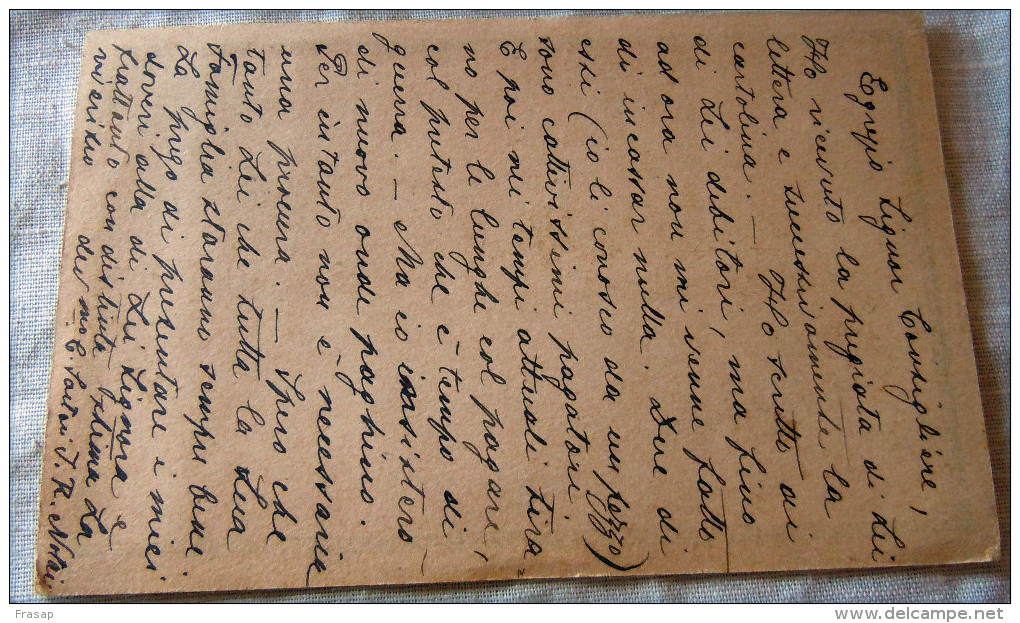 Egregio Signor Consigliere,
Ho ricevuto la pregiata di Lei
lettera e successivamente la
cartolina. — Ho scritto ai
di Lei debitori, ma fino
ad ora non mi venne fatto
di incassar nulla. Due di
essi (io li conosco da un pezzo)
sono cattivissimi pagatori
E poi nei tempi attuali tira
no per le lunghe col pagare,
col pretesto che è tempo di
guerra. — Ma io insisterò
di nuovo onde paghino.
Per intanto non è necessaria
una procura. — Spero che
tanto Lei che tutta la Sua
famiglia staranno sempre bene.
La prego di presentare i miei
doveri alla di Lei Signora e
frattanto con distinta stima La
riverisco
dev mo E. J. R. Notaio
Frasap
www.delcampe.net